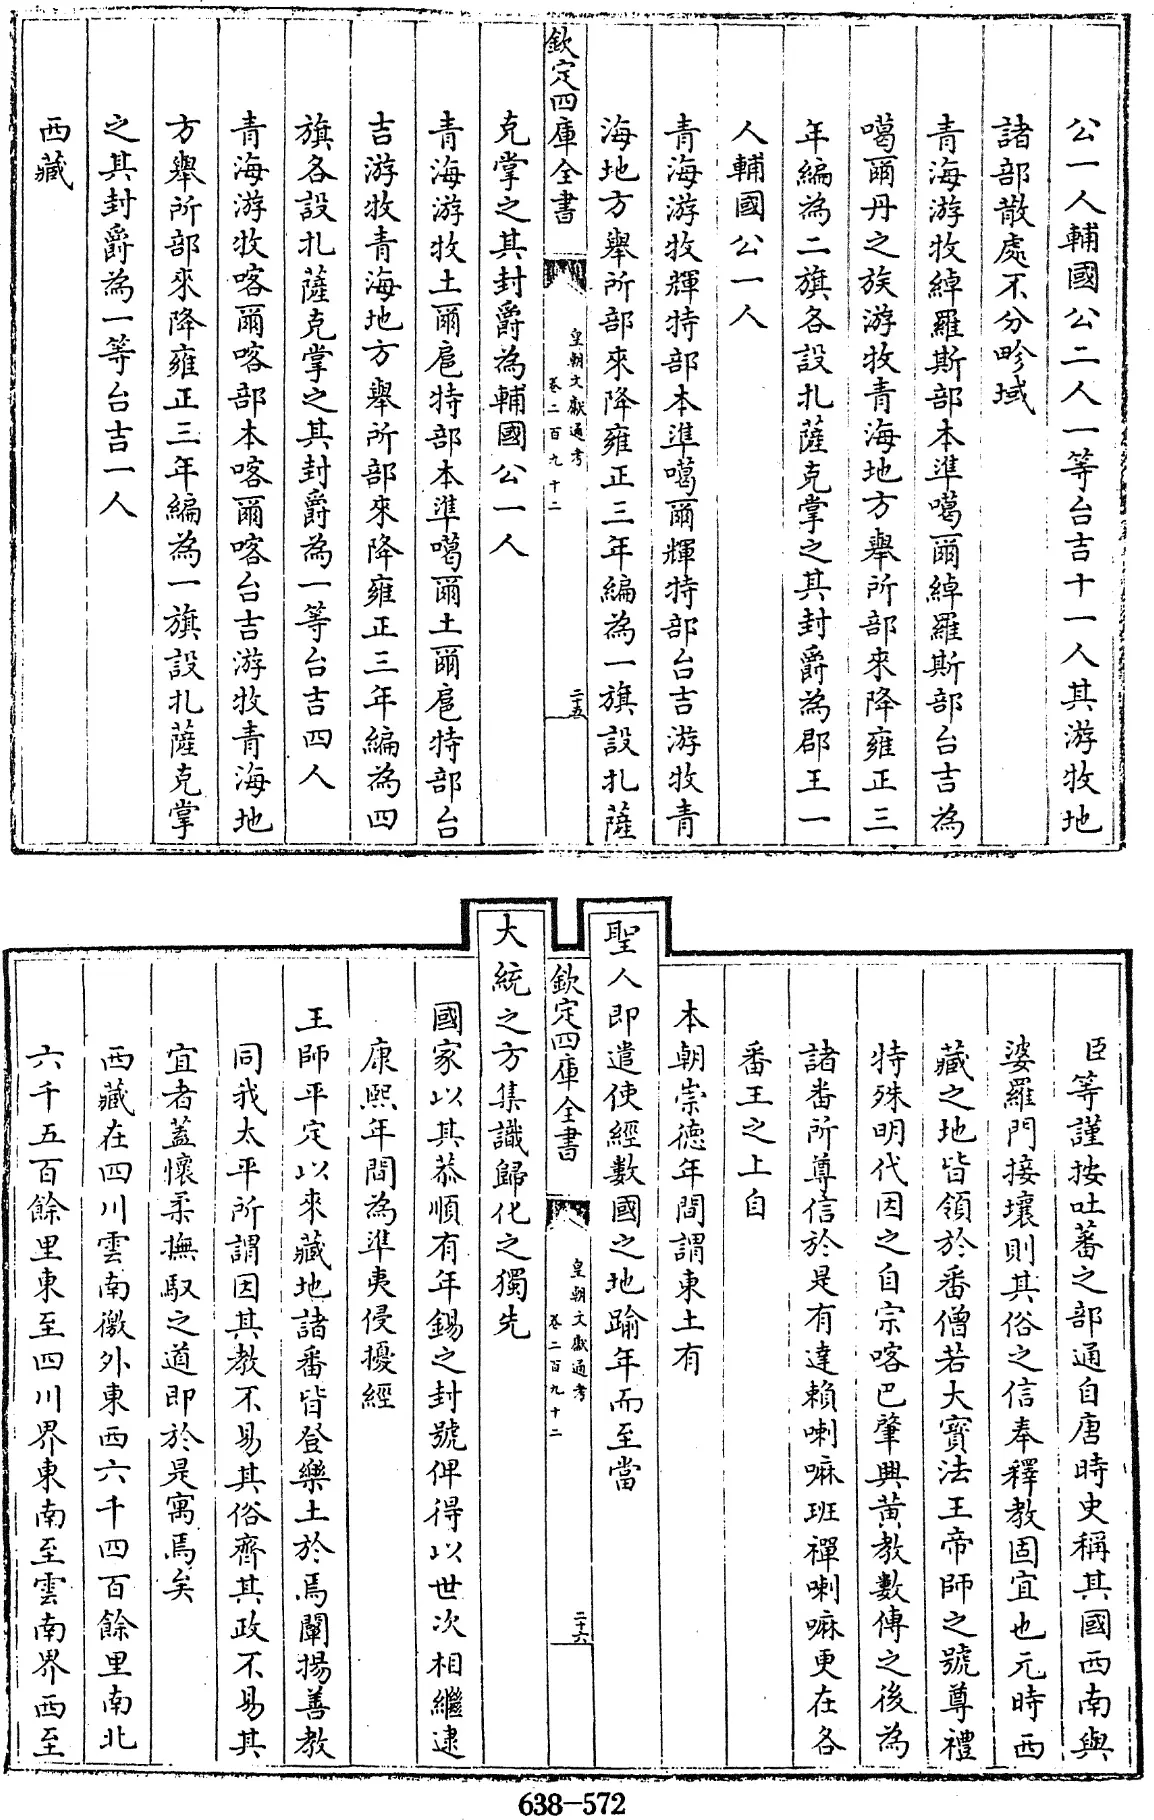 公一人輔國公二人一等台吉十一人其游牧地
諸部散處不分畛域
青海游牧綽羅斯部本準噶爾綽羅斯部台吉為
噶爾丹之族游牧青海地方舉所部來降雍正三
年編為二旗各設扎薩克掌之其封爵為郡王一
人輔國公一人
青海游牧輝特部本準噶爾輝特部台吉游牧青
海地方舉所部來降雍正三年編為一旗設扎薩
欽定四庫全書
皇朝文獻通考
卷二百九十二
二十五
克掌之其封爵為輔國公一人
青海游牧土爾扈特部本準噶爾土爾扈特部台
吉游牧青海地方舉所部來降雍正三年編為四
旗各設扎薩克掌之其封爵為一等台吉四人
青海游牧喀爾喀部本喀爾喀台吉游牧青海地
方舉所部來降雍正三年編為一旗設扎薩克掌
之其封爵為一等台吉一人
西藏
臣等謹按吐蕃之部通自唐時史稱其國西南與
婆羅門接壤則其俗之信奉釋教固宜也元時西
藏之地皆領於番僧若大寶法王帝師之號尊禮
特殊明代因之自宗喀巴肇興黄教數傳之後為
諸番所尊信於是有達賴喇嘛班禪喇嘛更在各
番王之上自
本朝崇德年間謂東土有
聖人即遣使經數國之地踰年而至當
欽定四庫全書
皇朝文獻通考
卷二百九十二
二十六
大統之方集識歸化之獨先
國家以其恭順有年錫之封號俾得以世次相繼逮
康熙年間為準夷侵擾經
王師平定以來藏地諸番皆登樂土於焉闡揚善教
同我太平所謂因其教不易其俗齊其政不易其
宜者蓋懷柔撫馭之道即於是寓焉矣
西藏在四川雲南徼外東西六千四百餘里南北
六千五百餘里東至四川界東南至雲南界西至
638-572